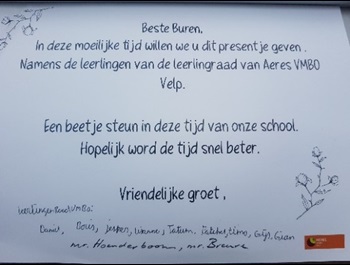 Beste Buren,
In deze moeilijke tijd willen we u dit presentje geven.
Namens de leerlingen van de leerlingraad van Aeres VMBO
Velp.
Een beetje steun in deze tijd van onze school.
Hopelijk word de tijd snel beter.
Vriendelijke groet,
Boris, Jesper, Tatum, Timo, Gijs, Gian
mr. Breure